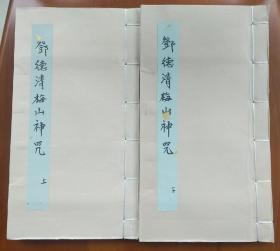 鄧德清梅山神咒
上
鄧德清梅山神咒
下